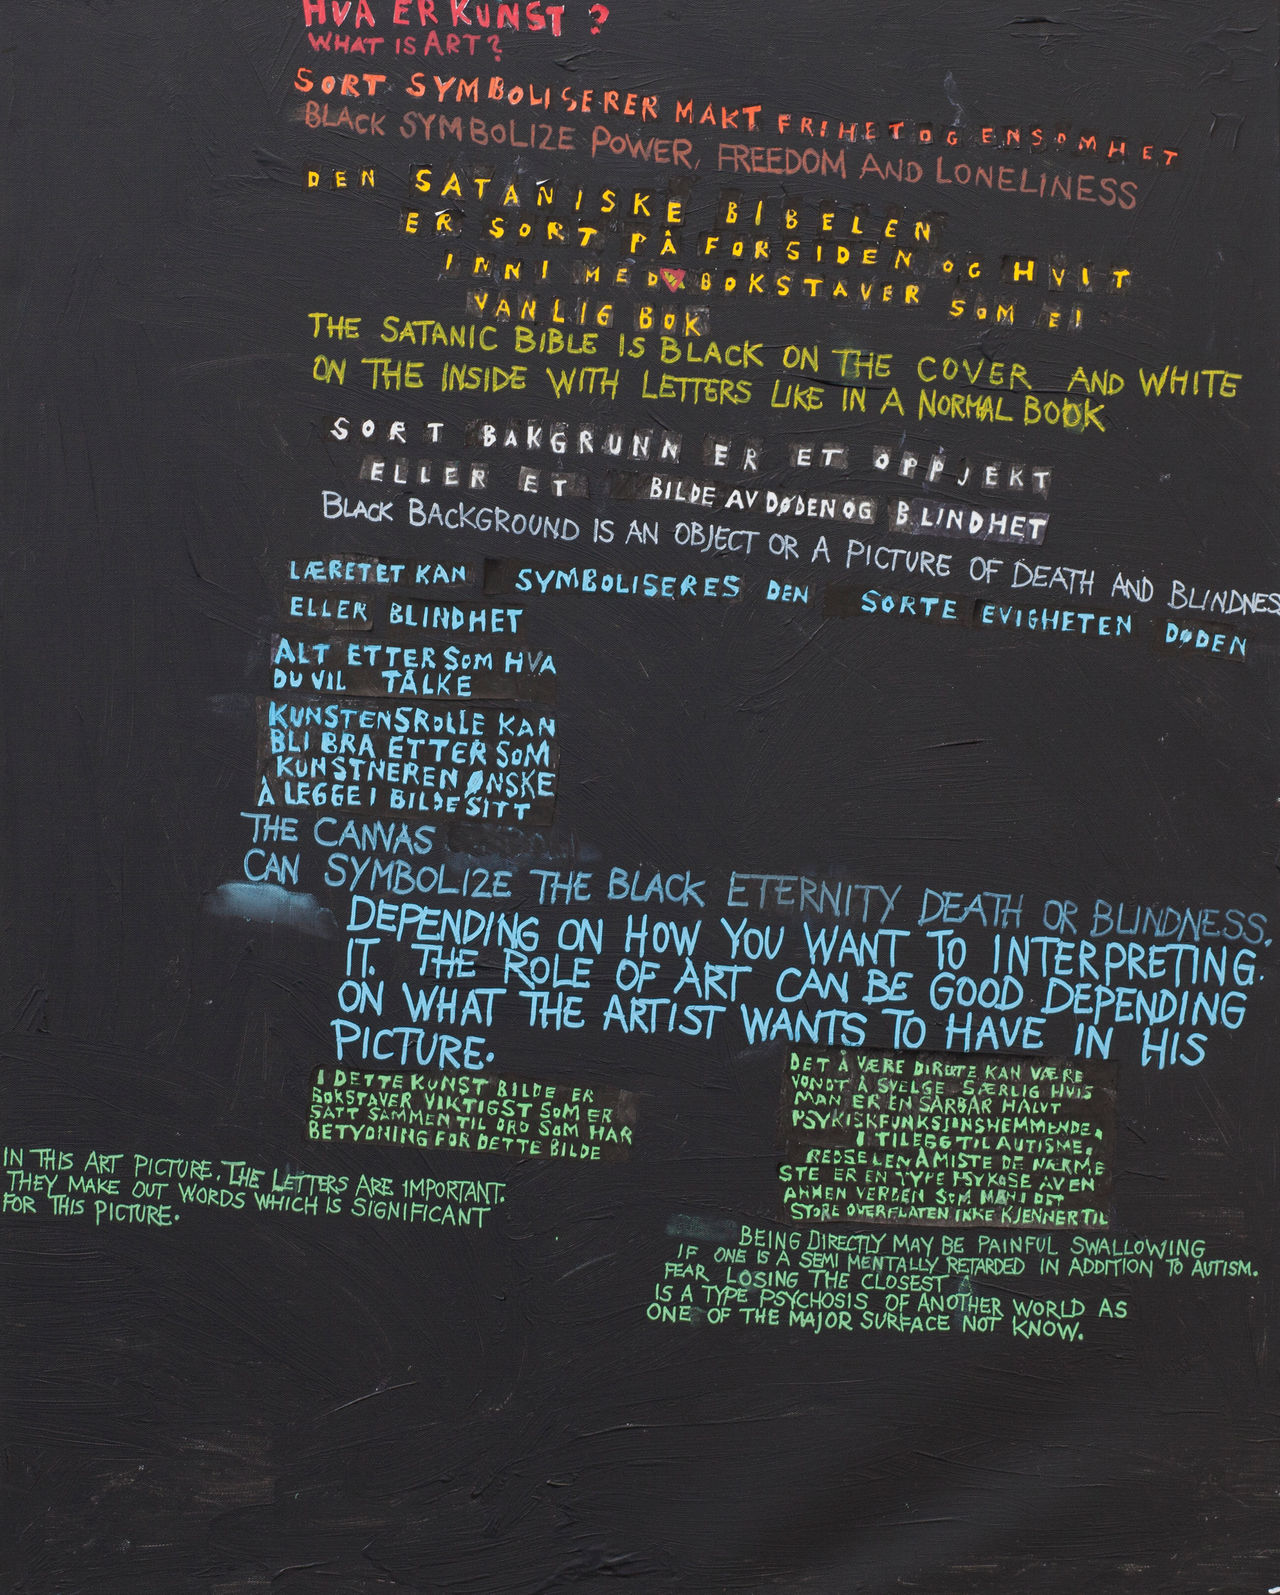 HVA ER KUNST ?
WHAT IS ART?
SORT SYMBOLISERER MAKT FRIHET OG ENSOMHET
BLACK SYMBOLIZE POWER, FREEDOM AND LONELINESS
DEN SATANISKE BIBELEN
ER SORT PÅ FORSIDEN OG HVIT
INNI MED BOKSTAVER SOM EI
VANLIG BOK
THE SATANIC BIBLE IS BLACK ON THE COVER AND WHITE
ON THE INSIDE WITH LETTERS LIKE IN A NORMAL BOOK
SORT BAKGRUNN ER ET OPPJEKT
ELLER ET BILDE AV DØDEN OG BLINDHET
BLACK BACKGROUND IS AN OBJECT OR A PICTURE OF DEATH AND BLINDNES
LÆRETET KAN SYMBOLISERES DEN SORTE EVIGHETEN DØDEN
ELLER BLINDHET
ALT ETTER SOM HVA
DU VIL TALKE
KUNSTENSROLLE KAN
BLI BRA ETTER SOM
KUNSTNEREN ØNSKE
Å LEGGE I BILDE SITT
THE CANVAS
CAN SYMBOLIZE THE BLACK ETERNITY DEATH OR BLINDNESS.
DEPENDING ON HOW YOU WANT TO INTERPRETING.
IT. THE ROLE OF ART CAN BE GOOD DEPENDING
ON WHAT THE ARTIST WANTS TO HAVE IN HIS
PICTURE.
I DETTE KUNST BILDE ER
BOKSTAVER VIKTIGST SOM ER
SATT SAMMEN TIL ORD SOM HAR
BETYDNING FOR DETTE BILDE
IN THIS ART PICTURE. THE LETTERS ARE IMPORTANT.
THEY MAKE OUT WORDS WHICH IS SIGNIFICANT
FOR THIS PICTURE.
DET Å VÆRE DIREKTE KAN VÆRE
VONDT Å SVELGE SÆRLIG HVIS
MAN ER EN SÅRBAR HALVT
PSYKISKFUNKSJONSHEMMENDE.
I TILEGG TIL AUTISME.
REDSELEN Å MISTE DE NÆRME
STE ER EN TYPE PSYKOSE AV EN
ANNEN VERDEN SOM MAN I DET
STORE OVERFLATEN IKKE KJENNER TIL
BEING DIRECTLY MAY BE PAINFUL SWALLOWING
IF ONE IS A SEMI MENTALLY RETARDED IN ADDITION TO AUTISM.
FEAR LOSING THE CLOSEST
IS A TYPE PSYCHOSIS OF ANOTHER WORLD AS
ONE OF THE MAJOR SURFACE NOT KNOW.